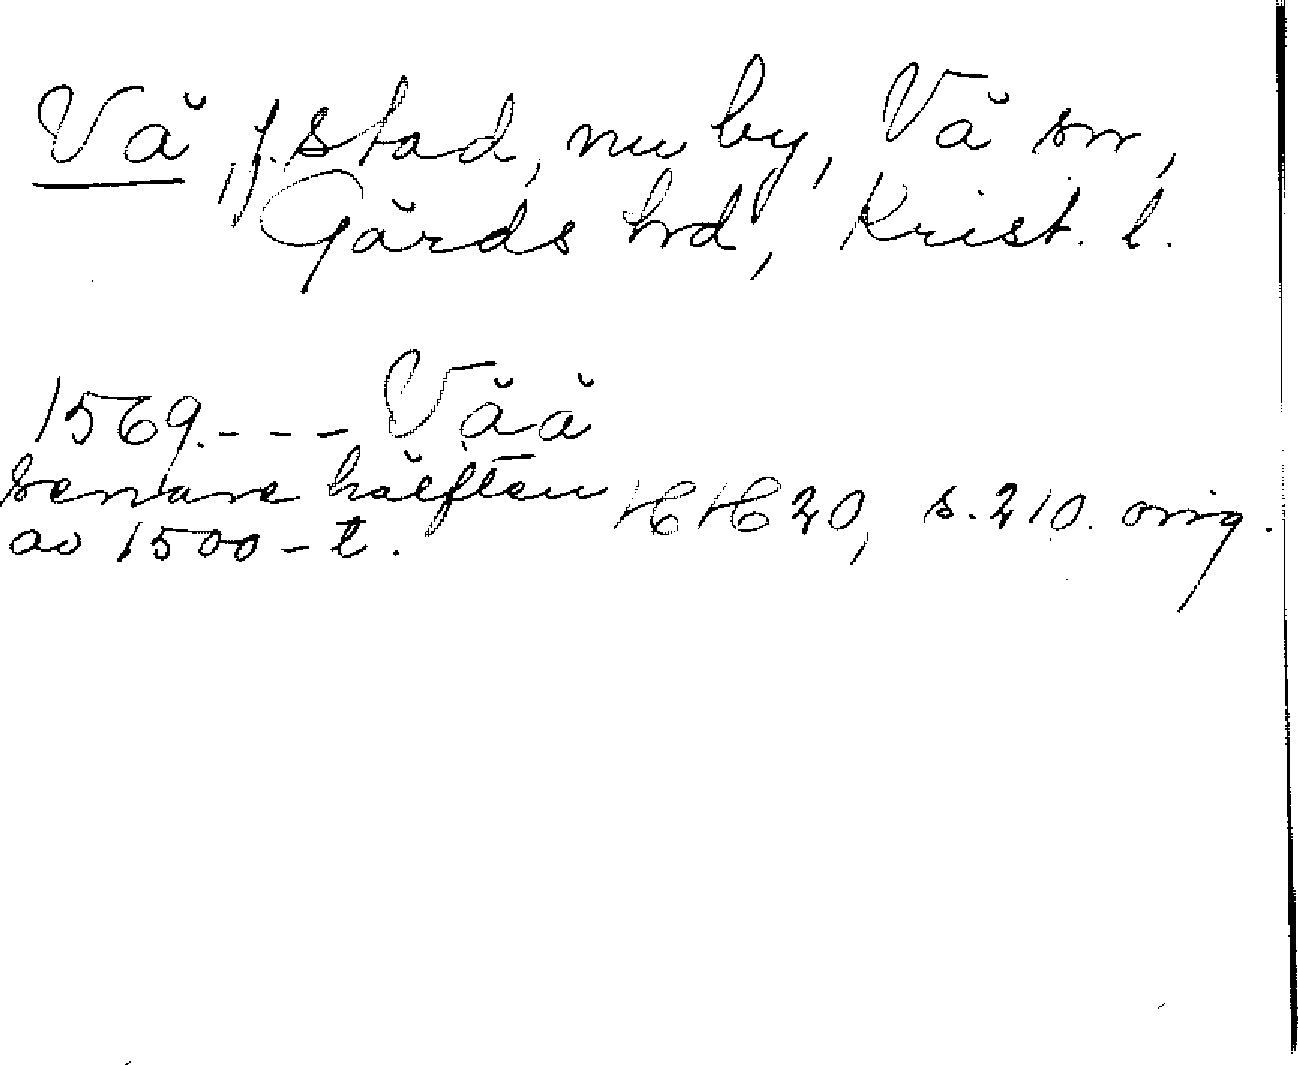 Vä, f. stad, nu by, Vä sn,
Gärds hd, Krist. l.
1569. - - - Vää
senare hälften
av 1500-t. HH 20, s. 210. orig.